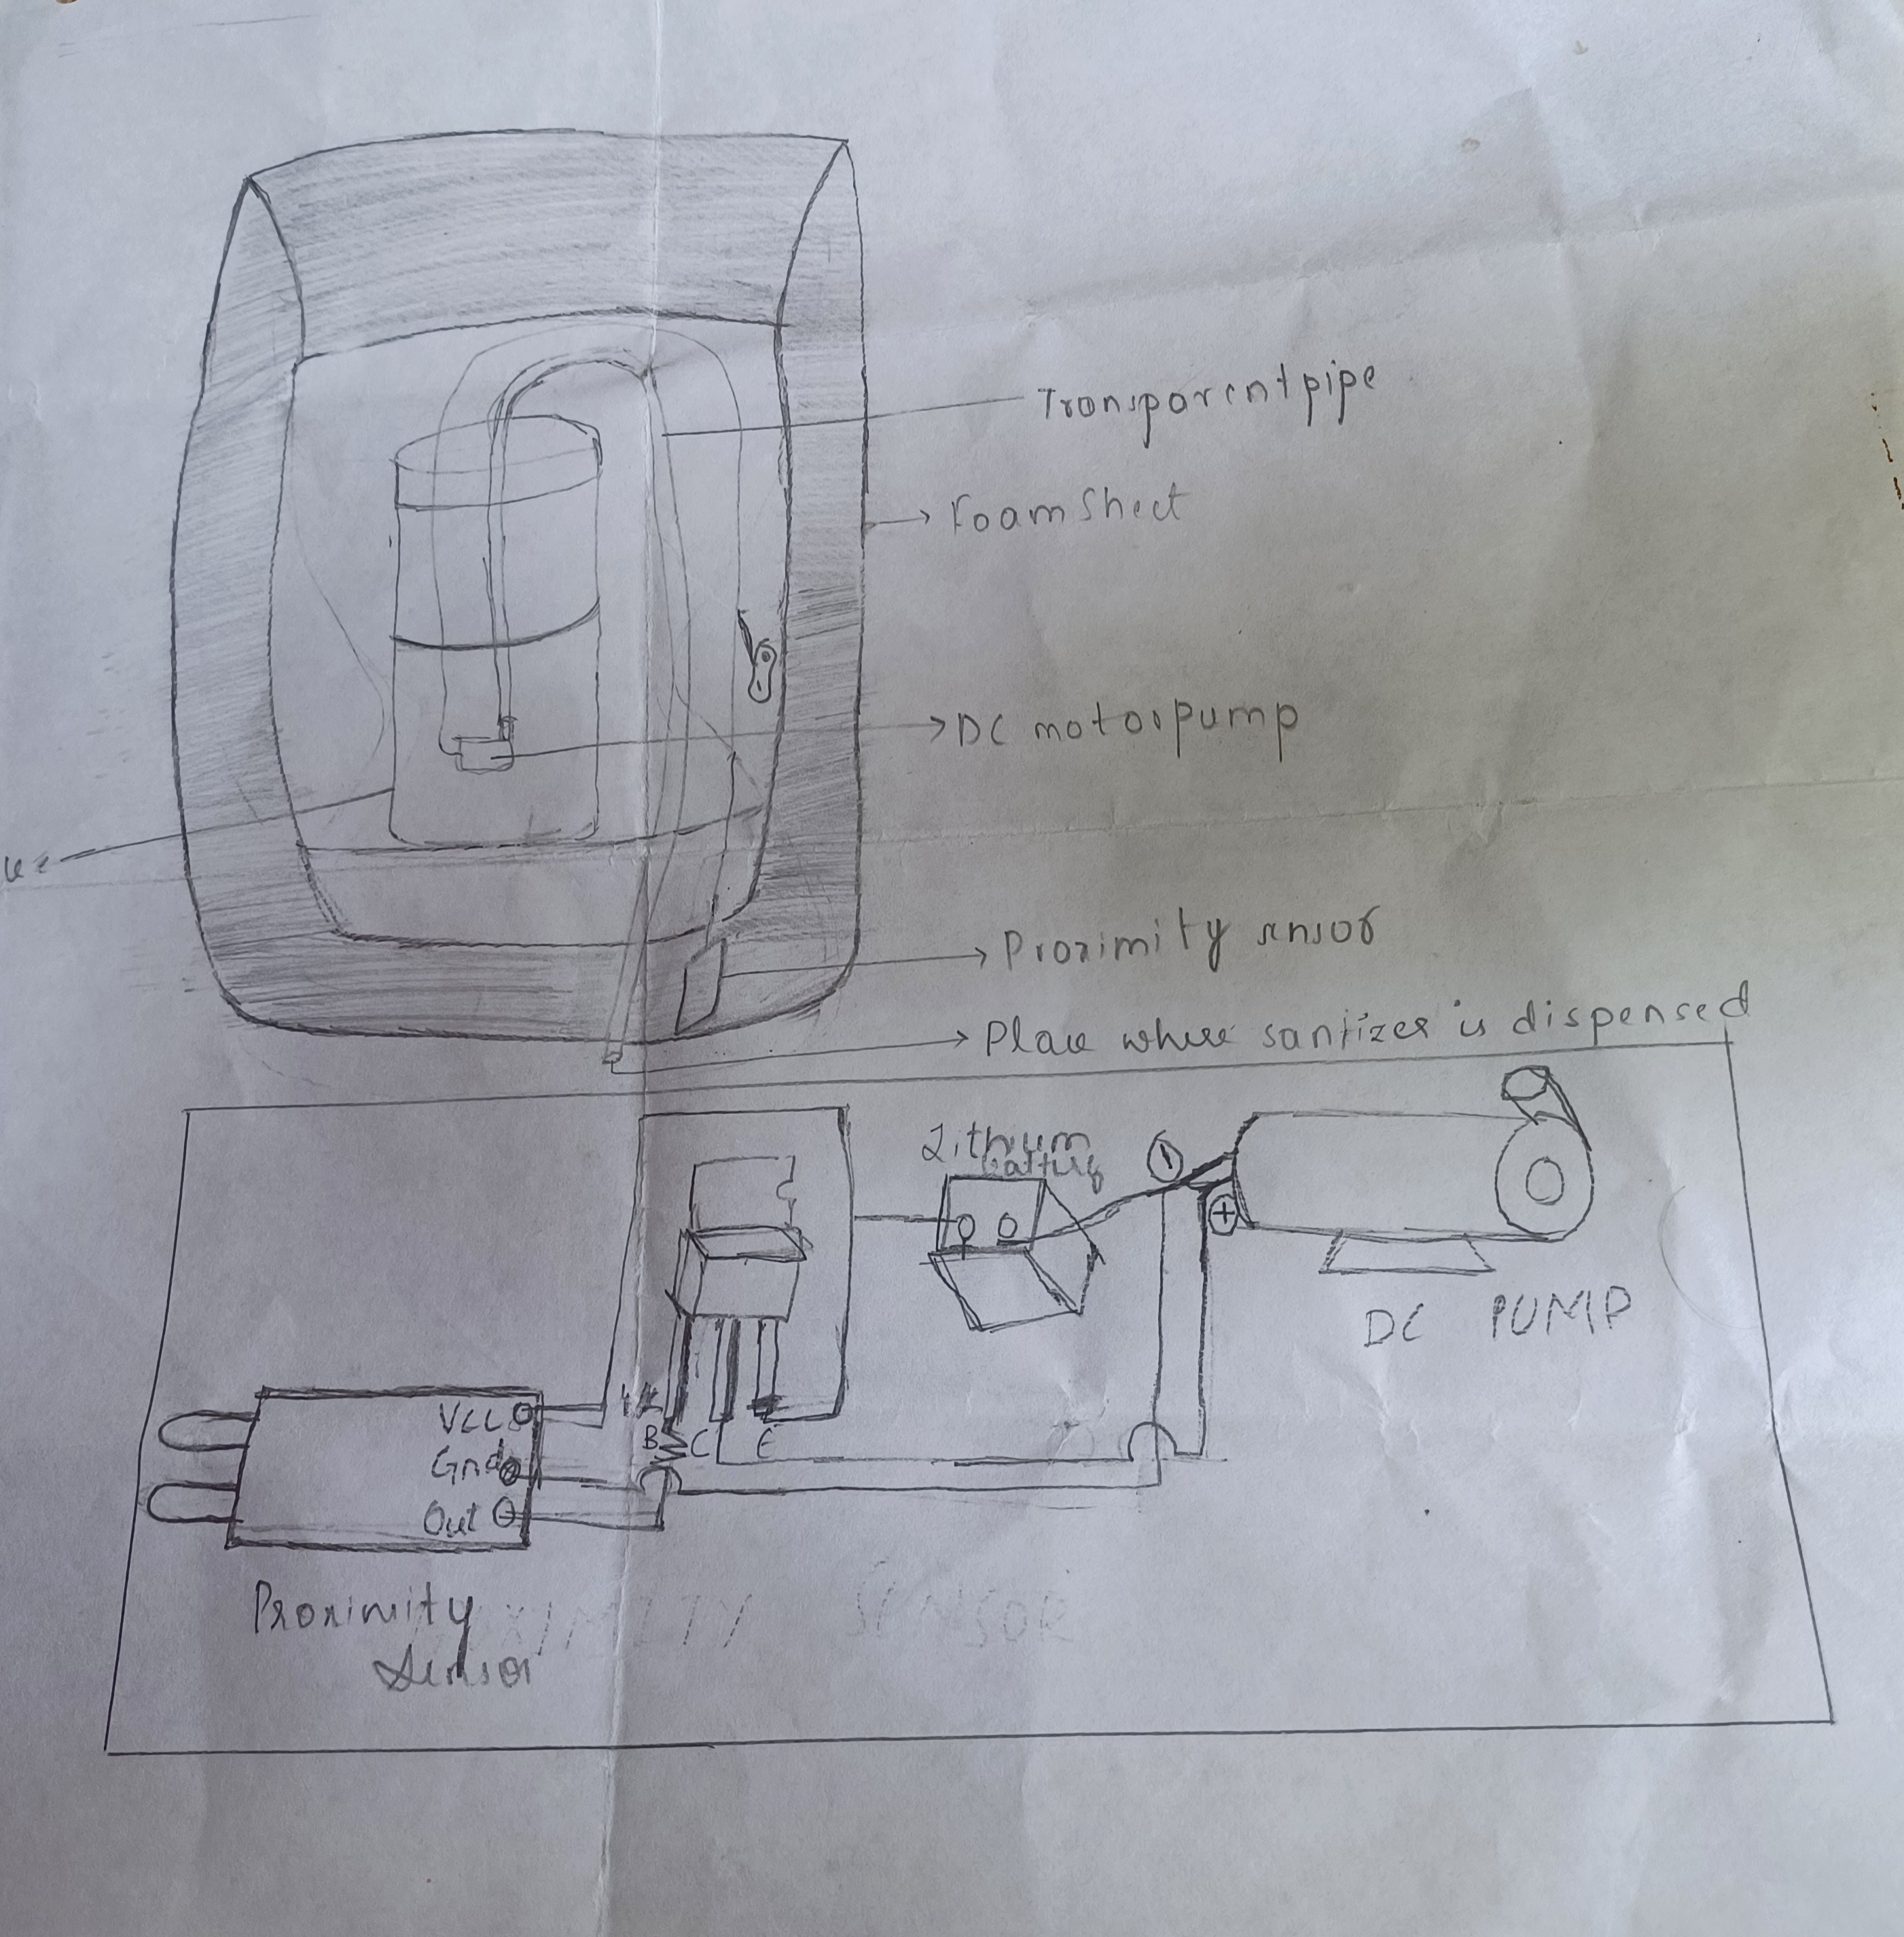 Transparent pipe
Foam Sheet
DC motor pump
Proximity sensor
Place where sanitizer is dispensed
Lithium
battery
DC PUMP
VCC
Gnd
Out
1k
B C E
Proximity
Sensor
PROXIMITY SENSOR